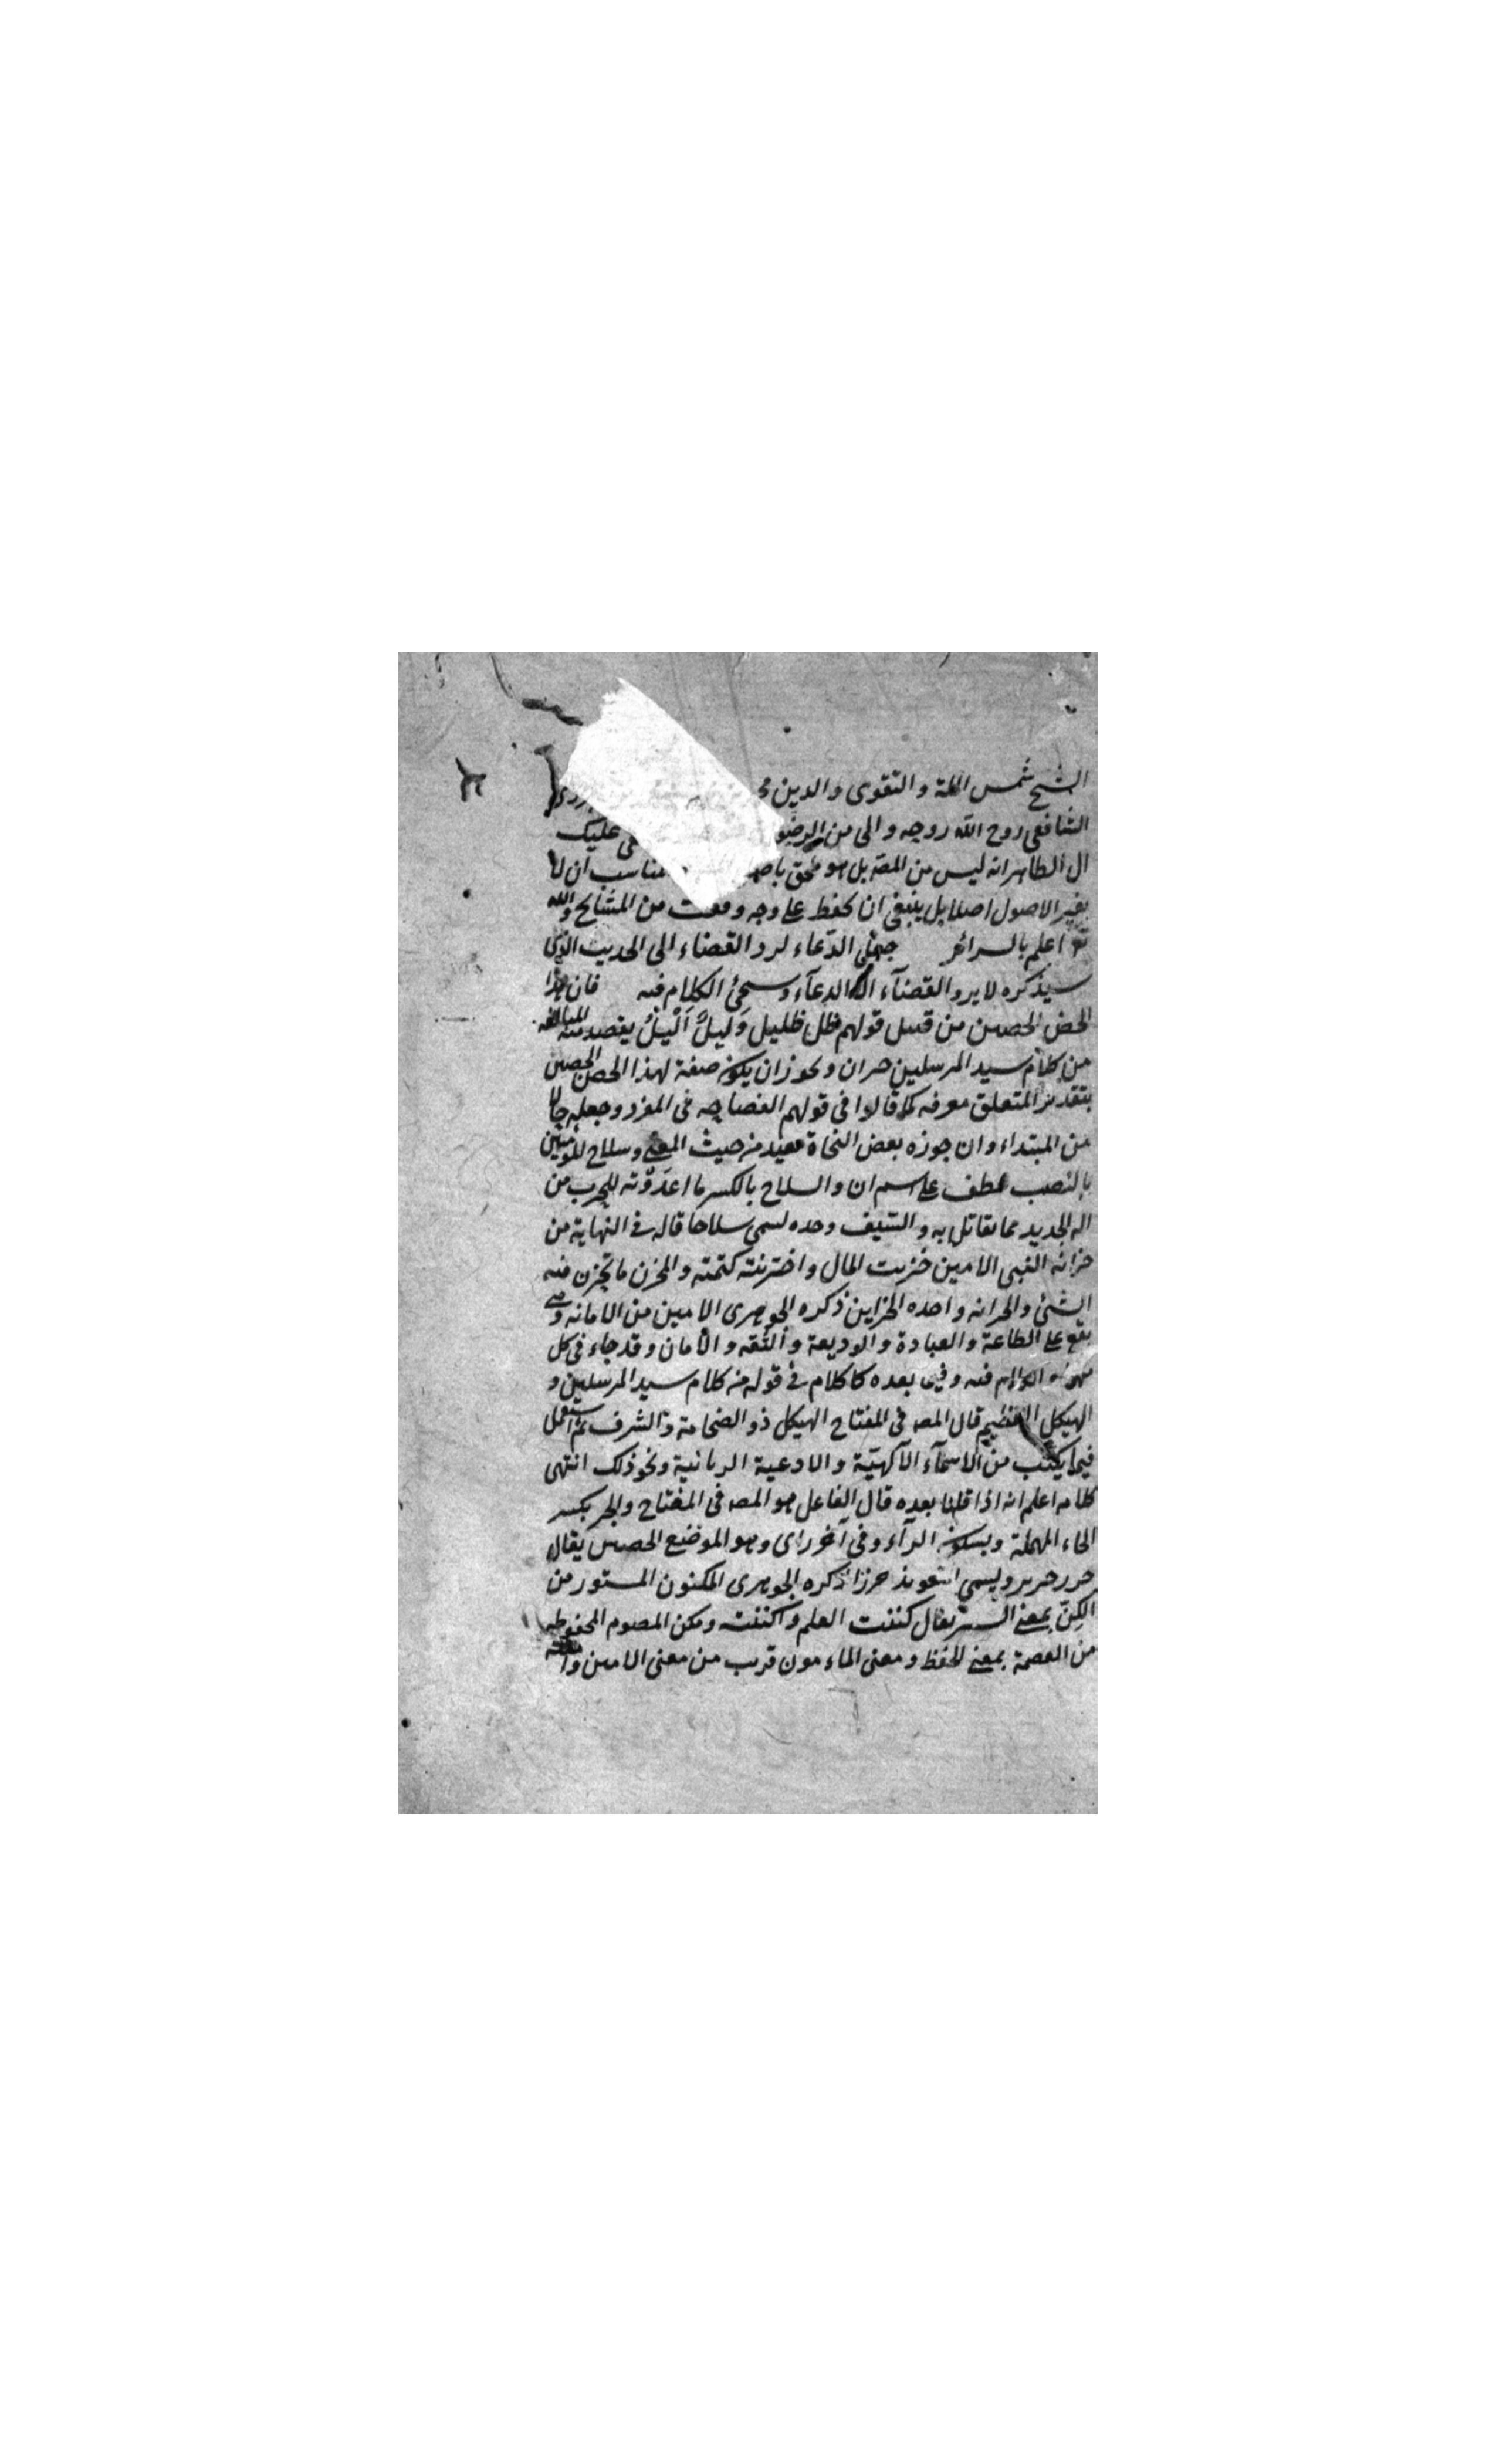 الشيخ شمس الملة والتقوى والدين
الشافعى روح الله روحه والى من عليك
ان الظاهر انه ليس من المصه بل هو ملحق المناسب ان لا
يغير الاصول اصلا بل ينبغى ان يحفظ على وجه وقعت من المشايخ والله
تعـ اعلم بالسرائر الدعاء لرد القضاء الى الحديث الذى
سيذكره لا يرد القضآء الا الدعآء وسيجئ الكلام فيه فان هذا
الحصن الحصين من قبيل قولهم ظل ظليل وَليلٌ اَلْيلُ يقصد منه المبالغة
من كلام سيد المرسلين خبر ان ويجوز ان يكون صفة لهذا الحصن الحصين
بتقدير المتعلق معرفه كما قالوا فى قولهم الفصاحه فى المفرد وجعله حالا
من المبتداء وان جوزه بعض النحاة من حيث المعنى وسلاح للمؤمنين
بالنصب عطف على اسم ان والسلاح بالكسر ما اعددته للحرب من
اله الحديد مما يقاتل به والسّيف وحده يسمى سلاحا قاله فى النهاية من
خزانه النبى الامين خزنت المال واختزنته كتمته والمخزن ما يخزن فيه
الشئ والخزانه واحده الخزاين ذكره الجوهرى الامين من الامانه وهى
يقع على الطاعة والعبادة والوديعة والثقه والامان وقد جاء فى كل
منها والكلام فيه وفيما بعده كالكلام فى قوله من كلام سيد المرسلين و
الهيكل العظيم قال المصه فى المفتاح الهيكل ذو الضخامة والشرف ثم استعمل
فيما يكتب من الاسمآء الآلهيّة والادعية الربانية ونحو ذلك انتهى
كلامه اعلم انه اذا قلنا بعده قال الفاعل هو المصه فى المفتاح والحرز بكسر
الحاء المهملة وبسكون الرآء وفى آخره زاى وهو الموضع الحصين يقال
حرز حريز ويسمى التعويذ حرزا ذكره الجوهرى المكنون المستور من
الكِنّ بمعنى الستر يقال كننت العلم واكننته ومكن المصوم المحفوظ
من العصمة بمعنى الحفظ ومعنى الماءمون قريب من معنى الامين